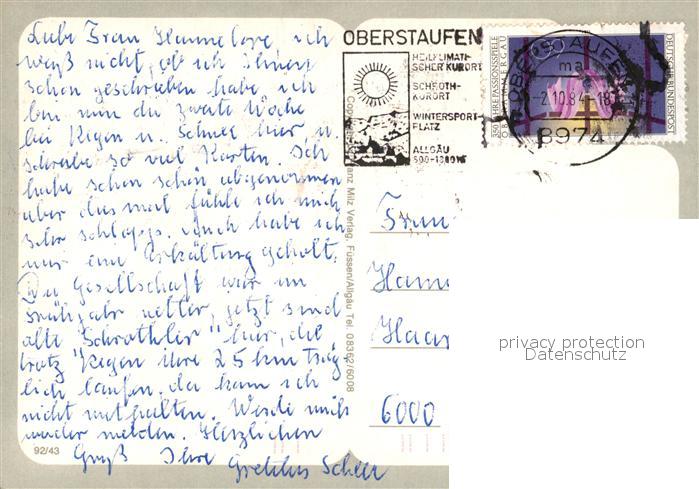 Liebe Frau Hannelore, ich
weiß nicht, ob ich Ihnen
schon geschrieben habe, ich
bin nun die zweite Woche
bei Regen u. Schnee hier u.
schreibe so viel Karten. Ich
habe schon schön abgenommen
aber dies mal fühle ich mich
sehr schlapp. Auch habe ich
mir eine Erkältung geholt.
Die Gesellschaft war im
Frühjahr netter, jetzt sind
alte "Schrothler" hier, die
trotz Regen ihre 25 km täg
lich laufen, da kann ich
nicht mithalten. Werde mich
wieder melden. Herzlichen
Gruß Ihre
92/43
OBERSTAUFEN
HEILKLIMATI-
SCHER KURORT
SCHROTH-
KURORT
WINTERSPORT-
PLATZ
ALLGÄU
OBERSTAUFEN
-2.10.84
8974
DEUTSCHE BUNDESPOST
Franz Milz Verlag, Füssen/Allgäu Tel. 08362/6008
Frau
6000
privacy protection
Datenschutz